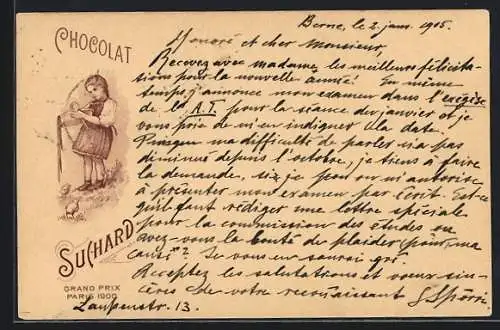 CHOCOLAT
SUCHARD
GRAND PRIX
PARIS 1900
Berne, le 2 janv. 1905.
Honoré et cher Monsieur,
Recevez avec madame les meilleurs félicita-
tions pour la nouvelle année! En même
temps, j'annonce mon examen dans l'exégèse
de l'A.T. pour la séance de janvier et je
vous prie de m'en indiquer la date.
Puisque ma difficulté de parler n'a pas
diminué depuis l'octobre, je tiens à faire
la demande, si je peux ou m'autorise
à présenter mon examen par écrit. Est-ce
qu'il faut rédiger une lettre spéciale
pour la commission des études ou
avez-vous la bonté de plaider (pour) ma
cause? Je vous en saurai gré.
Recevez les salutations et voeux sin-
cères de votre reconnaissant
Laupenstr. 13.